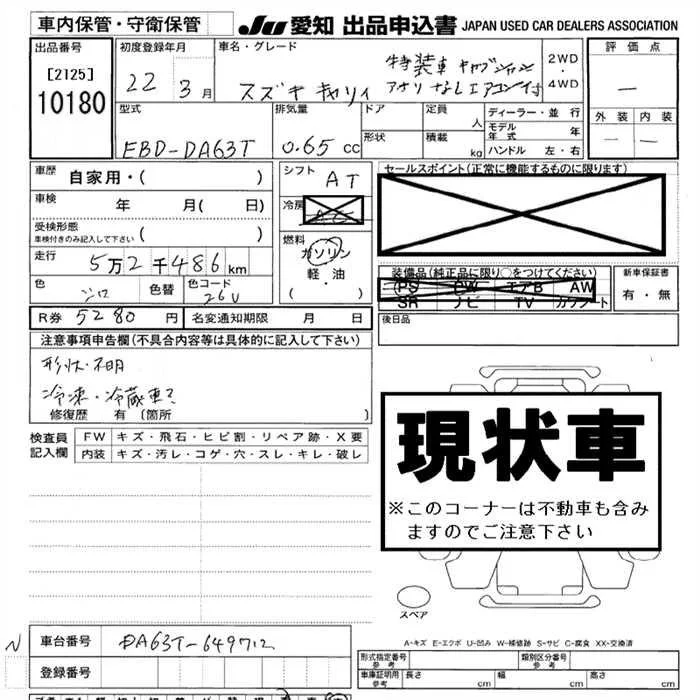 車内保管・守衛保管
JU 愛知 出品申込書 JAPAN USED CAR DEALERS ASSOCIATION
出品番号 初度登録年月 車名・グレード 2WD・4WD 評価点
[2125]
10180 22 3月 スズキ キャリィ 特装車 アオリなしエアコン付 —
外装 内装
— —
型式 排気量 ドア 定員 人 ディーラー・並行
モデル年式 年
形状 積載 kg ハンドル 左・右
EBD-DA63T 0.65 cc
車歴 自家用・( ) シフト AT セールスポイント(正常に機能するものに限ります)
車検 年 月( 日) 冷房 AC
受検形態
車検付きのみ記入して下さい ( )
燃料 ガソリン 軽・油 ( ・ )
走行 5万2千486km
装備品(純正品に限り○をつけてください) 新車保証書
PS PW エアB AW
SR ナビ TV カワシート
有・無
色 シロ 色替 色コード 26U
R券 5280 円 名変通知期限 月 日 後日品
注意事項申告欄(不具合内容等は具体的に記入して下さい)
形状・不明
冷凍・冷蔵車
修復歴 有 (箇所 )
検査員記入欄 FW キズ・飛石・ヒビ割・リペア跡・X要
内装 キズ・汚レ・コゲ・穴・スレ・キレ・破レ
現状車
※このコーナーは不動車も含み
ますのでご注意下さい
スペア
A-キズ E-エクボ U-凹み W-補修跡 S-サビ C-腐食 XX-交換済
N 車台番号 DA63T-649712
登録番号
形式指定番号 参考 類別区分番号 参考
車庫証明用 参考 長さ cm 幅 cm 高さ cm